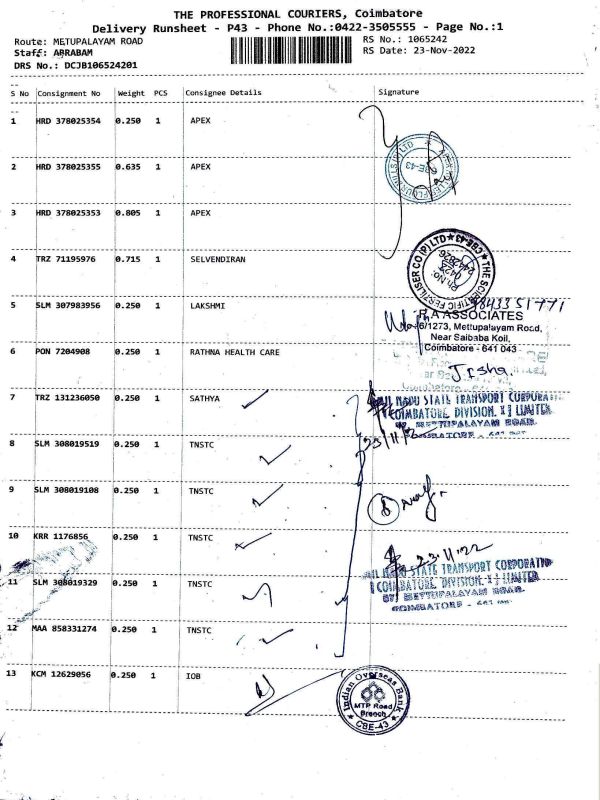 THE PROFESSIONAL COURIERS, Coimbatore
Delivery Runsheet - P43 - Phone No.:0422-3505555 - Page No.:1
Route: METUPALAYAM ROAD RS No.: 1065242
Staff: ABRABAM RS Date: 23-Nov-2022
DRS No.: DCJB106524201
S No Consignment No Weight PCS Consignee Details Signature
1 HRD 378025354 0.250 1 APEX
2 HRD 378025355 0.635 1 APEX
3 HRD 378025353 0.805 1 APEX
4 TRZ 71195976 0.715 1 SELVENDIRAN
THE SCIENTIFIC FERTILISER CO (P) LTD ★ CBE-43 ★
Ph No: 0422
5 SLM 307983956 0.250 1 LAKSHMI
9843351771
R A ASSOCIATES
6/1273, Mettupalayam Road,
Near Saibaba Koil,
Coimbatore - 641 043
6 PON 7204908 0.250 1 RATHNA HEALTH CARE
7 TRZ 131236050 0.250 1 SATHYA
STATE TRANSPORT CORPORATIO
COIMBATORE. DIVISION. X I LIMITED
METTUPALAYAM ROAD.
COIMBATORE - 641
8 SLM 308019519 0.250 1 TNSTC
9 SLM 308019108 0.250 1 TNSTC
10 KRR 1176856 0.250 1 TNSTC
23.11.22
NADU STATE TRANSPORT CORPORATIO
COIMBATORE. DIVISION. X I LIMITED
METTUPALAYAM ROAD.
COIMBATORE - 641
11 SLM 308019329 0.250 1 TNSTC
12 MAA 858331274 0.250 1 TNSTC
13 KCM 12629056 0.250 1 IOB
Indian Overseas Bank
MTP Road
Branch
CBE-43